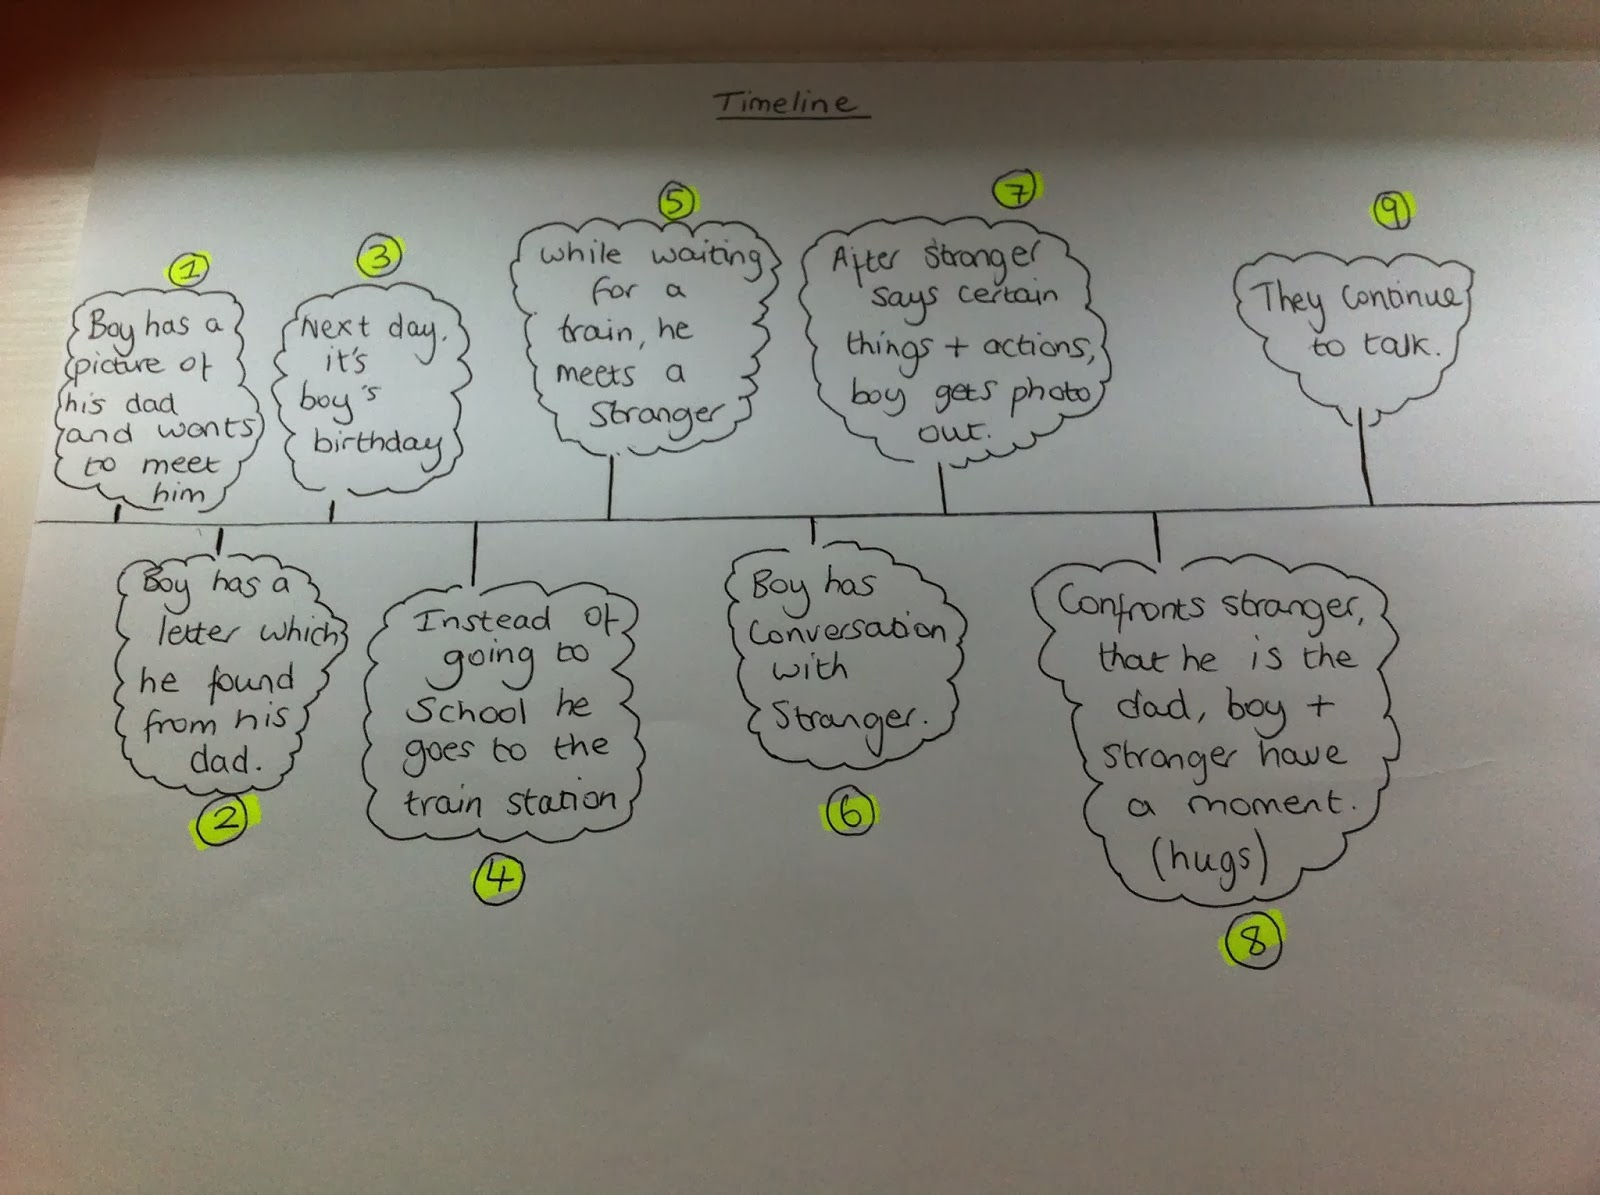 Timeline
1
Boy has a
picture of
his dad
and wants
to meet
him
Boy has a
letter which
he found
from his
dad.
2
3
Next day,
it's
boy's
birthday
Instead of
going to
School he
goes to the
train station
4
5
While waiting
for a
train, he
meets a
Stranger
Boy has
Conversation
with
Stranger.
6
7
After stranger
says certain
things + actions,
boy gets photo
out.
Confronts stranger,
that he is the
dad, boy +
stranger have
a moment.
(hugs)
8
9
They continue
to talk.